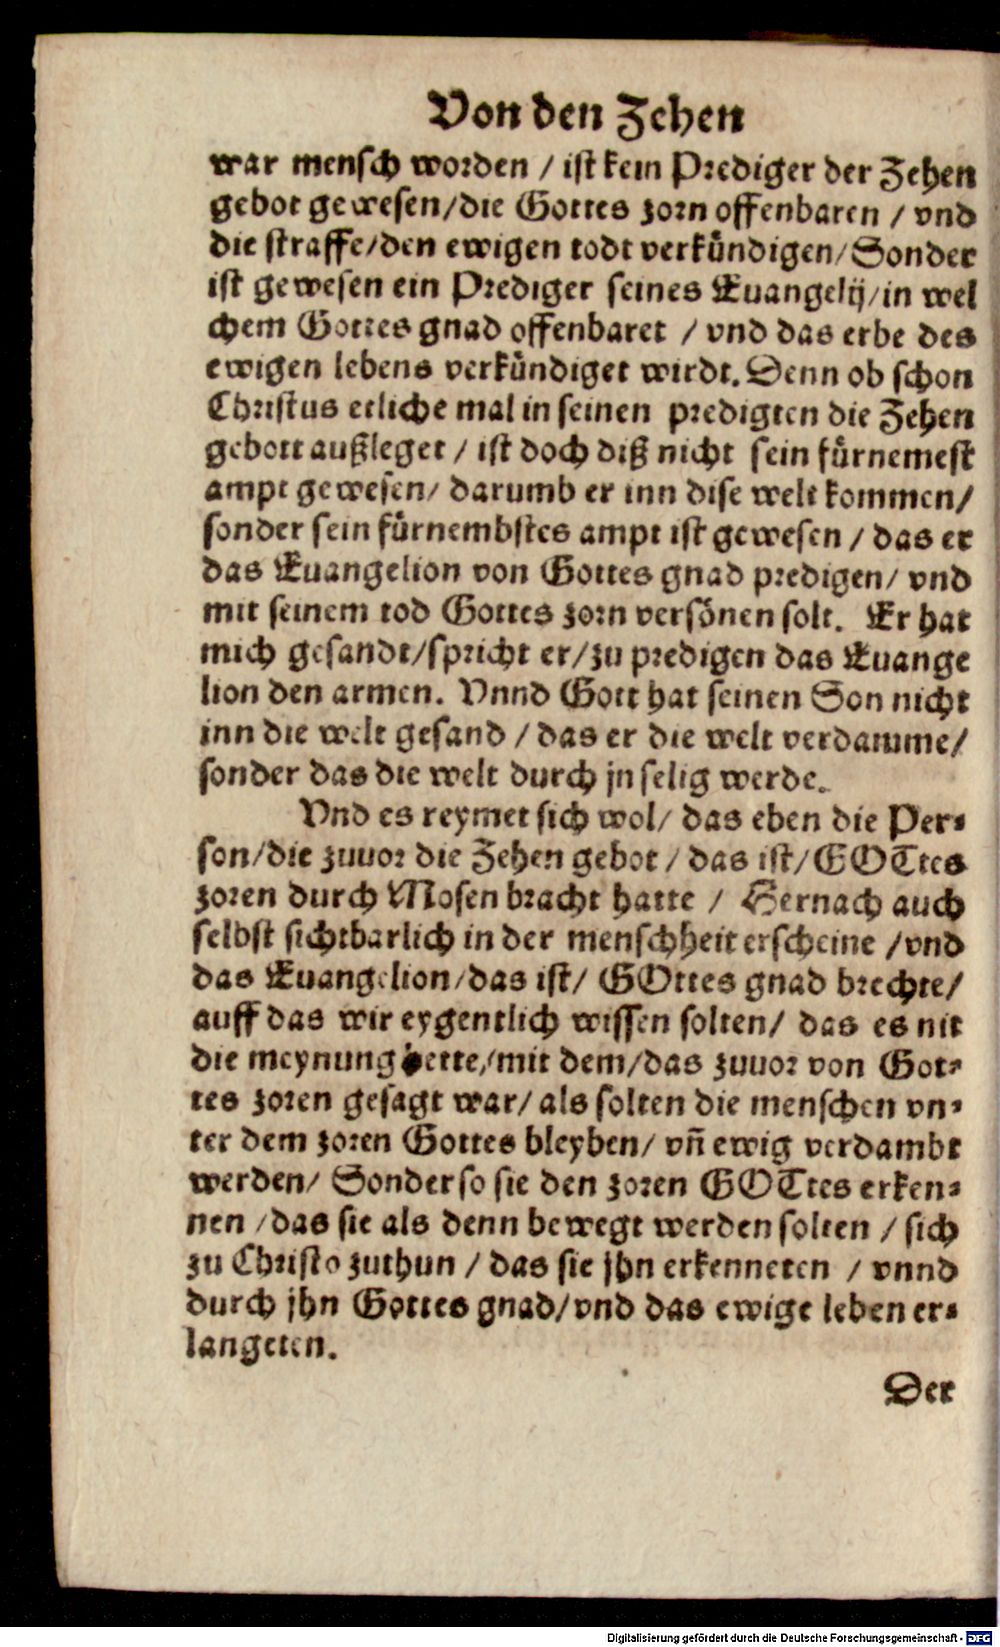 Von den Zehen
war mensch worden / ist kein Prediger der Zehen
gebot gewesen/die Gottes zorn offenbaren / vnd
die straffe/den ewigen todt verkündigen/Sonder
ist gewesen ein Prediger seines Euangelij/in wel
chem Gottes gnad offenbaret / vnd das erbe des
ewigen lebens verkündiget wirdt. Denn ob schon
Christus etliche mal in seinen predigten die Zehen
gebott außleget / ist doch diß nicht sein fürnemest
ampt gewesen/ darumb er inn dise welt kommen/
sonder sein fürnembstes ampt ist gewesen / das er
das Euangelion von Gottes gnad predigen/ vnd
mit seinem tod Gottes zorn versönen solt. Er hat
mich gesandt/spricht er/zu predigen das Euange
lion den armen. Vnnd Gott hat seinen Son nicht
inn die welt gesand / das er die welt verdamme/
sonder das die welt durch jn selig werde.
Vnd es reymet sich wol/ das eben die Per-
son/die zuuor die Zehen gebot / das ist/ GOTtes
zoren durch Mosen bracht hatte / Hernach auch
selbst sichtbarlich in der menschheit erscheine /vnd
das Euangelion/das ist/ GOttes gnad brechte/
auff das wir eygentlich wissen solten/ das es nit
die meynung hette/mit dem/das zuuor von Got-
tes zoren gesagt war/ als solten die menschen vn-
ter dem zoren Gottes bleyben/ vñ ewig verdambt
werden/ Sonder so sie den zoren GOTtes erken-
nen /das sie als denn bewegt werden solten / sich
zu Christo zuthun / das sie jhn erkenneten / vnnd
durch jhn Gottes gnad/vnd das ewige leben er-
langeten.
Der
Digitalisierung gefördert durch die Deutsche Forschungsgemeinschaft - DFG